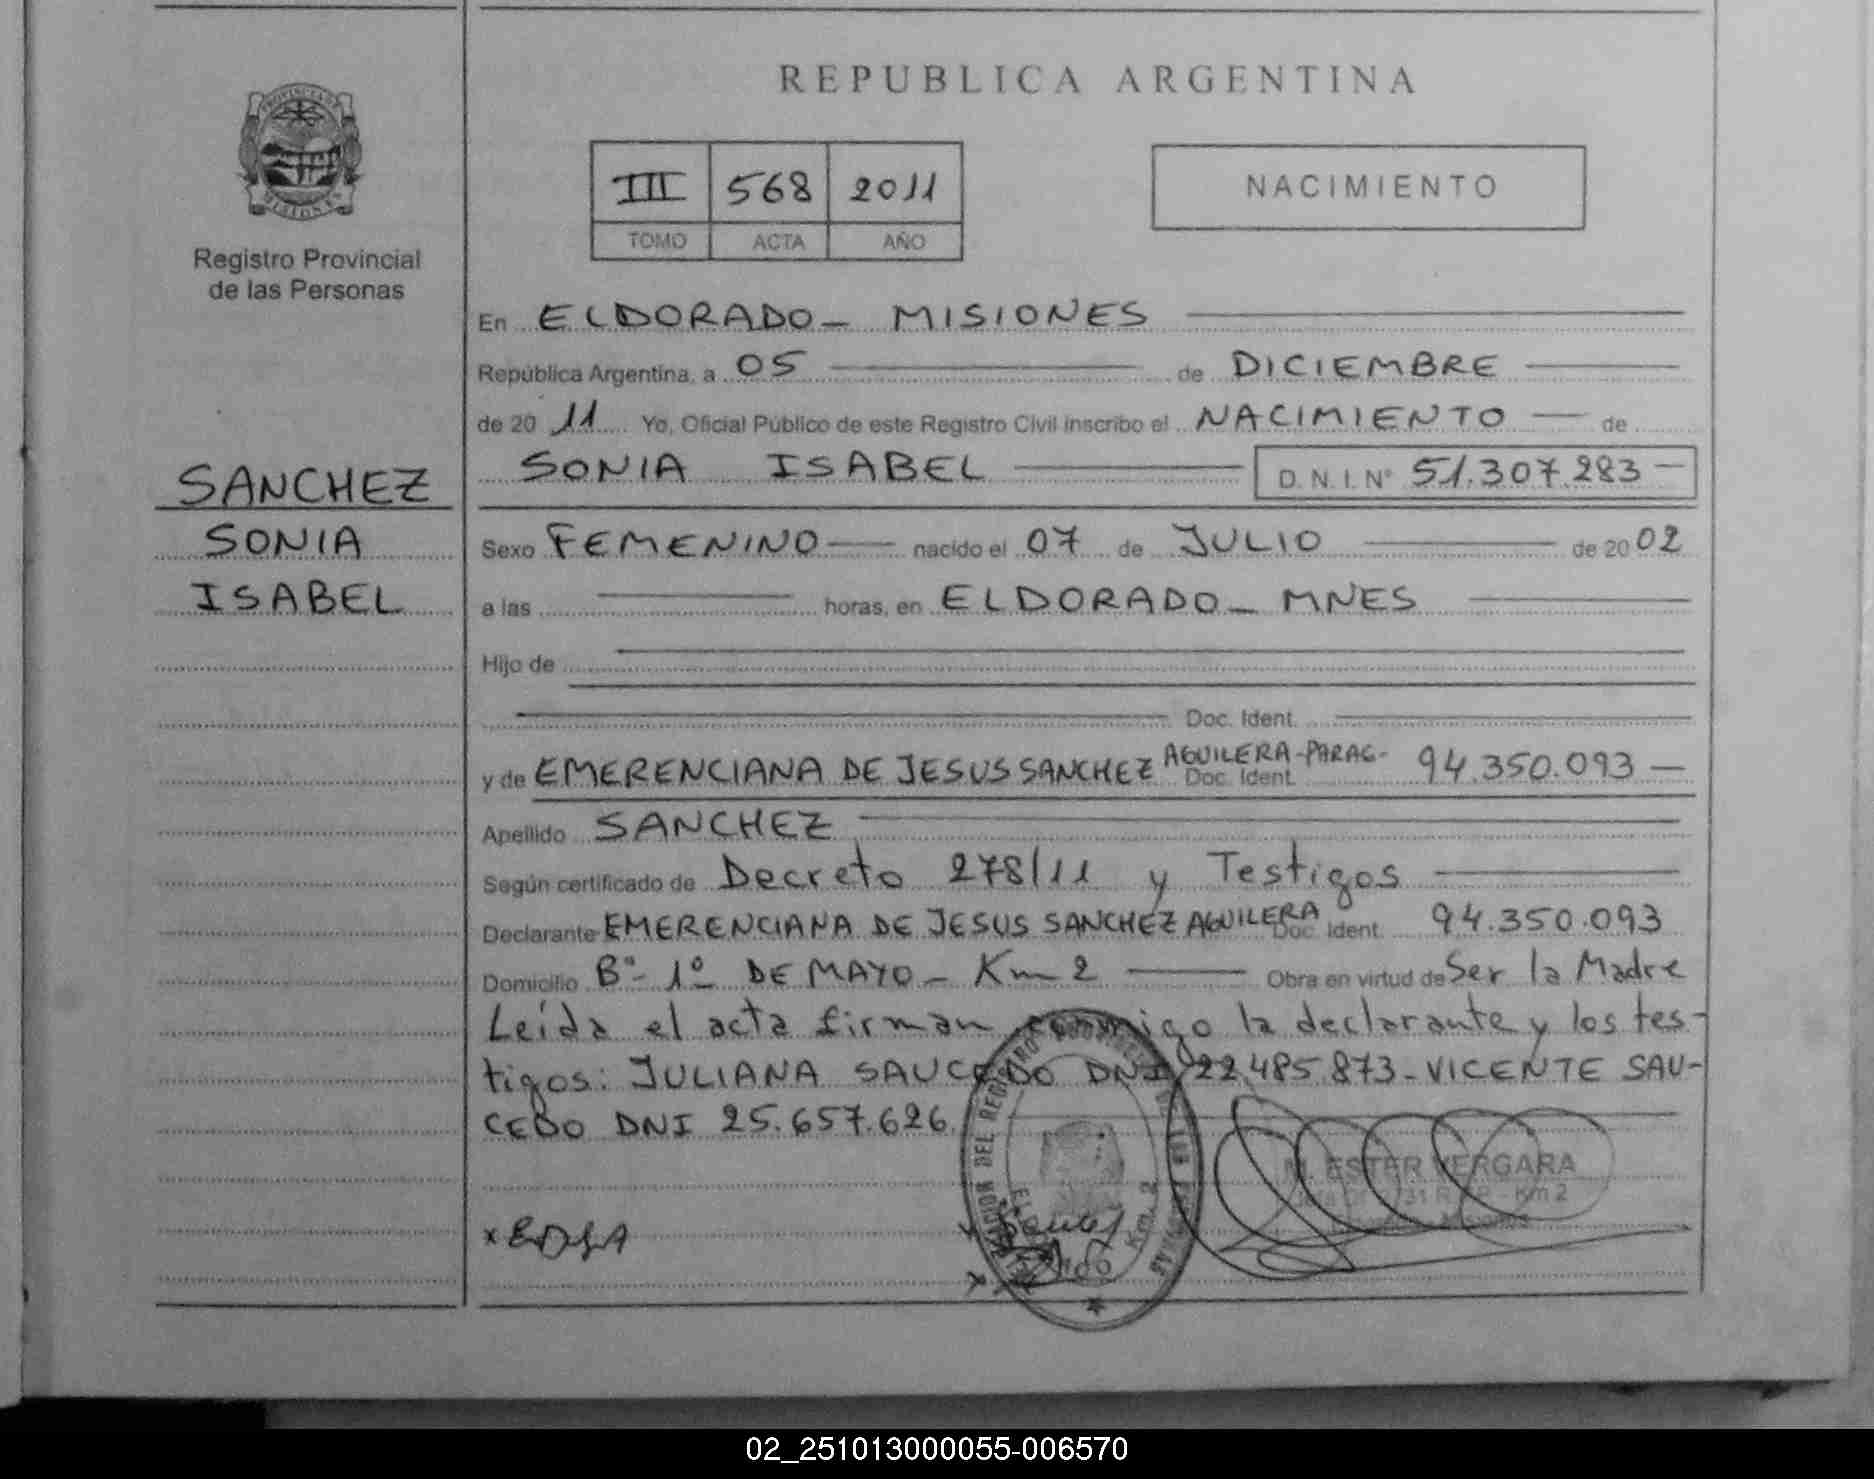 REPUBLICA ARGENTINA
PROVINCIA DE
MISIONES
Registro Provincial
de las Personas
III 568 2011
TOMO ACTA AÑO
NACIMIENTO
En ELDORADO - MISIONES
República Argentina, a 05 de DICIEMBRE
de 20 11 Yo, Oficial Público de este Registro Civil inscribo el NACIMIENTO de
SONIA ISABEL D. N. I. Nº 51.307.283 -
SANCHEZ
SONIA
ISABEL
Sexo FEMENINO nacido el 07 de JULIO de 20 02
a las horas, en ELDORADO - MNES
Hijo de
Doc. Ident.
y de EMERENCIANA DE JESUS SANCHEZ AGUILERA-PARAG- Doc. Ident. 94.350.093 -
Apellido SANCHEZ
Según certificado de Decreto 278/11 y Testigos
Declarante EMERENCIANA DE JESUS SANCHEZ AGUILERA Doc. Ident. 94.350.093
Domicilio Bº- 1º DE MAYO - Km 2 Obra en virtud de Ser la Madre
Leída el acta firman conmigo la declarante y los tes-
tigos: JULIANA SAUCEDO DNI 22.485.873 - VICENTE SAU-
CEDO DNI 25.657.626.
DEL REGISTRO
Km. 2
M. ESTER VERGARA
Km 2
02_251013000055-006570